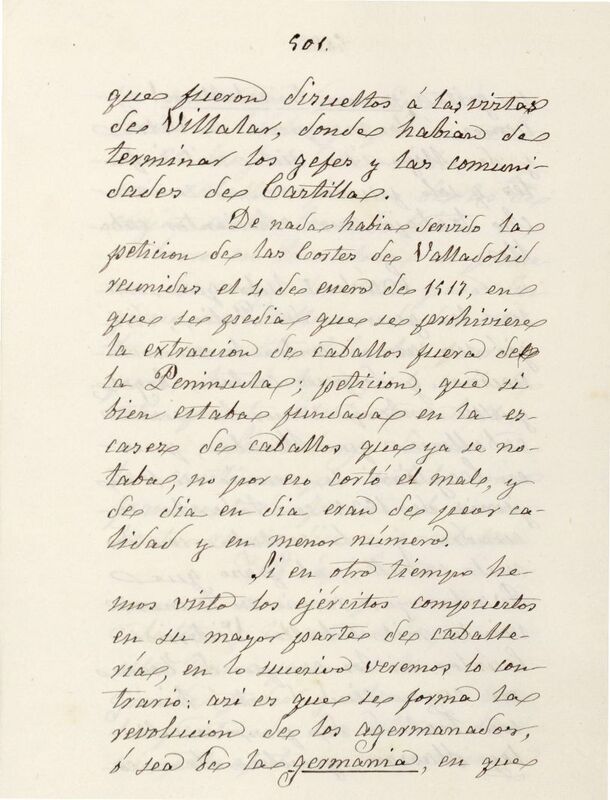 501.
que fueron disueltos á las vistas
de Villalar, donde habian de
terminar los gefes y las comuni-
dades de Castilla.
De nada habia servido la
peticion de las Cortes de Valladolid
reunidas el 4 de enero de 1517, en
que se pedia que se prohiviere
la extraccion de caballos fuera de
la Peninsula; peticion, que si
bien estaba fundada en la es-
casez de caballos que ya se no-
taba, no por eso cortó el mal, y
de dia en dia eran de peor ca-
lidad y en menor número.
Si en otro tiempo he-
mos visto los ejércitos compuestos
en su mayor parte de caballe-
ría, en lo sucesivo veremos lo con-
trario: asi es que se forma la
revolucion de los agermanados,
ó sea de la germania, en que